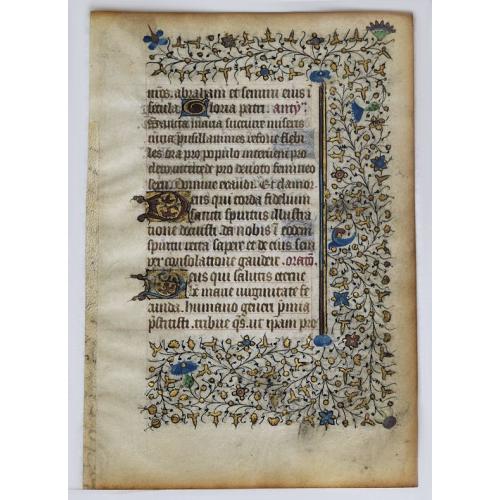 nr̄os. abraham et semini eius ı̄
secula. Gloria patri. antỹ.
Sancta maria succurre miseris
iuua pusillanimes refoue flebi
les ora pro populo interueni pro
clero intercede pro deuoto femineo
sexu. Domine exaudi. Et clamor
Deus qui corda fidelium
sancti spiritus illustra
tione docuisti. da nobis ī eodem
spiritu recta sapere et de eius sem
per consolatione gaudere. orat̄o.
Deus qui salutis eterne
marie uirginitate fe
cunda. humano generi p̄mia
p̄stitisti. tribue q̄s. ut ipam pro